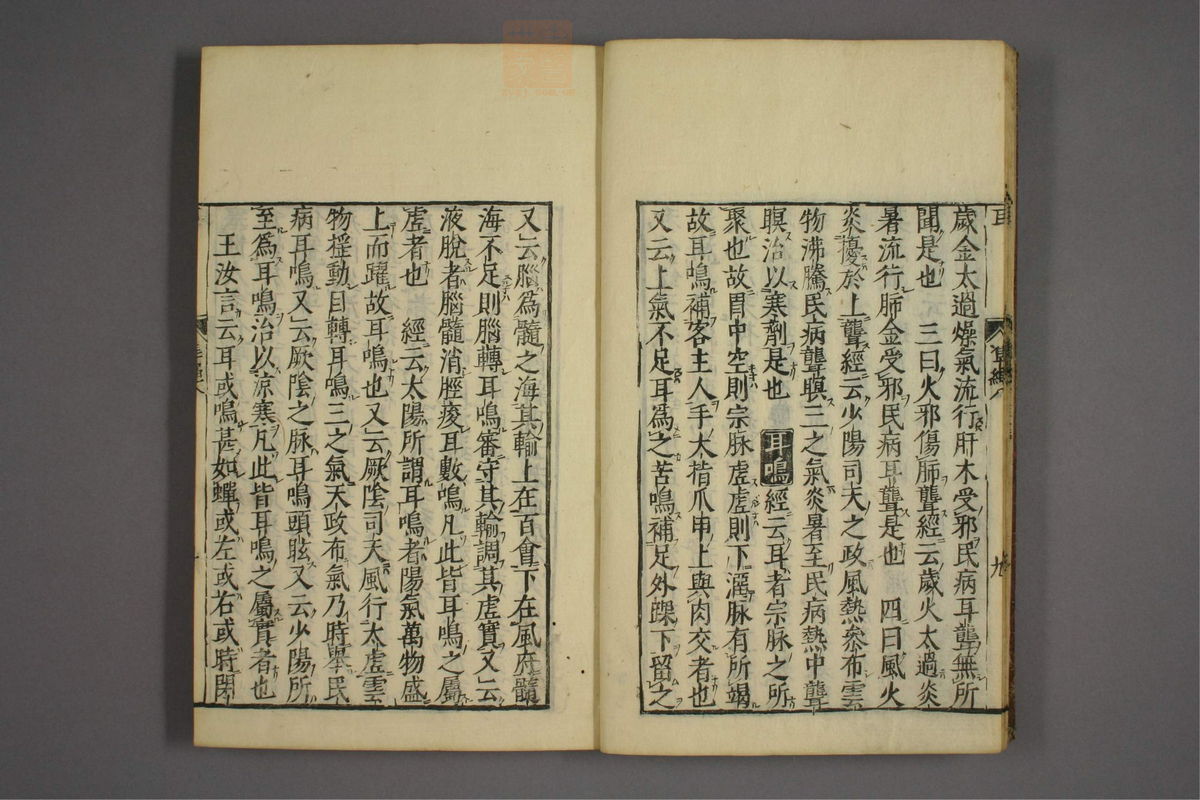 歲金太過燥氣流行肝木受邪民病耳聾無所
聞是也　三曰火邪傷肺聾經云歲火太過炎
暑流行肺金受邪民病耳聾是也　四曰風火
炎擾於上聾經云少陽司天之政風熱叅布雲
物沸騰民病聾瞑三之氣炎暑至民病熱中聾
瞑治以寒劑是也　耳鳴經云耳者宗脉之所
聚也故胃中空則宗脉虛虛則下溜脉有所竭
故耳鳴補客主人手大指爪甲上與肉交者也
又云上氣不足耳爲之苦鳴補足外踝下留之
九
又云腦爲髓之海其輸上在百會下在風府髓
海不足則腦轉耳鳴審守其輸調其虛實又云
液脫者腦髓消脛痠耳數鳴凡此皆耳鳴之屬
虛者也　經云太陽所謂耳鳴者陽氣萬物盛
上而躍故耳鳴也又云厥陰司天風行太虛雲
物揺動目轉耳鳴三之氣天政布氣乃時舉民
病耳鳴又云厥陰之脉耳鳴頭眩又云少陽所
至爲耳鳴治以涼寒凡此皆耳鳴之屬實者也
王汝言云耳或鳴甚如蟬或左或右或時閉